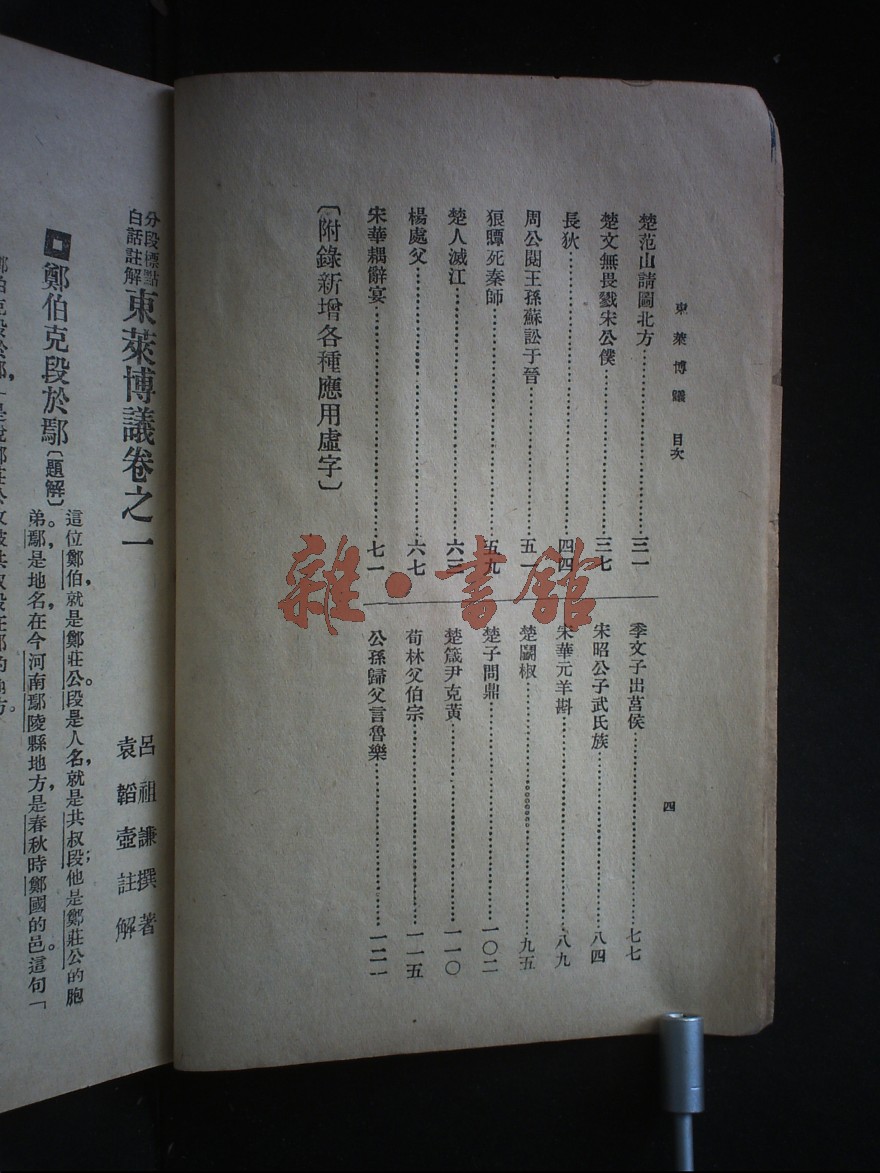 東萊博議 目次
四
楚范山請圖北方……三一
楚文無畏戮宋公僕……三七
長狄……四四
周公閱王孫蘇訟于晉……五一
狼瞫死秦師……五九
楚人滅江……六三
楊處父……六七
宋華耦辭宴……七一
〔附錄新增各種應用虛字〕
季文子出莒侯……七七
宋昭公子武氏族……八四
宋華元羊斟……八九
楚鬭椒……九五
楚子問鼎……一〇二
楚箴尹克黃……一一〇
荀林父伯宗……一一五
公孫歸父言魯樂……一二一
雜·書館
分段標點
白話註解
東萊博議卷之一
呂祖謙撰著
袁韜壺註解
鄭伯克段於鄢〔題解〕
這位鄭伯,就是鄭莊公。段是人名,就是共叔段;他是鄭莊公的胞
弟。鄢,是地名,在今河南鄢陵縣地方,是春秋時鄭國的邑。這句「